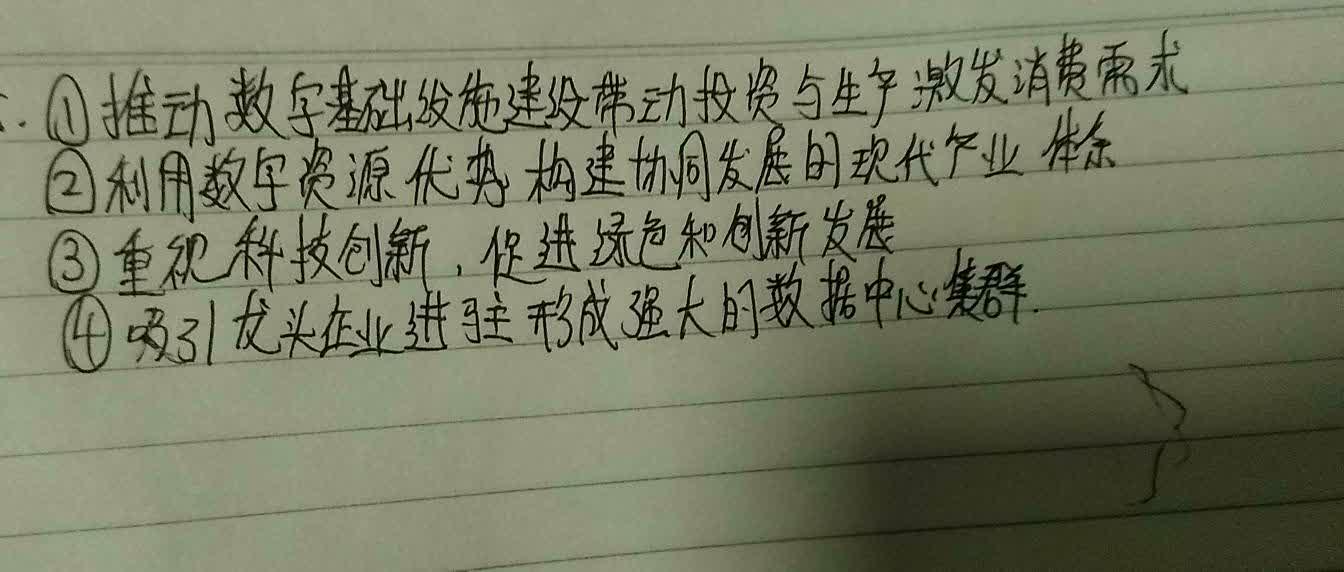 ①推动数字基础设施建设带动投资与生产激发消费需求
②利用数字资源优势构建协同发展的现代产业体系
③重视科技创新,促进绿色和创新发展
④吸引龙头企业进驻形成强大的数据中心集群.